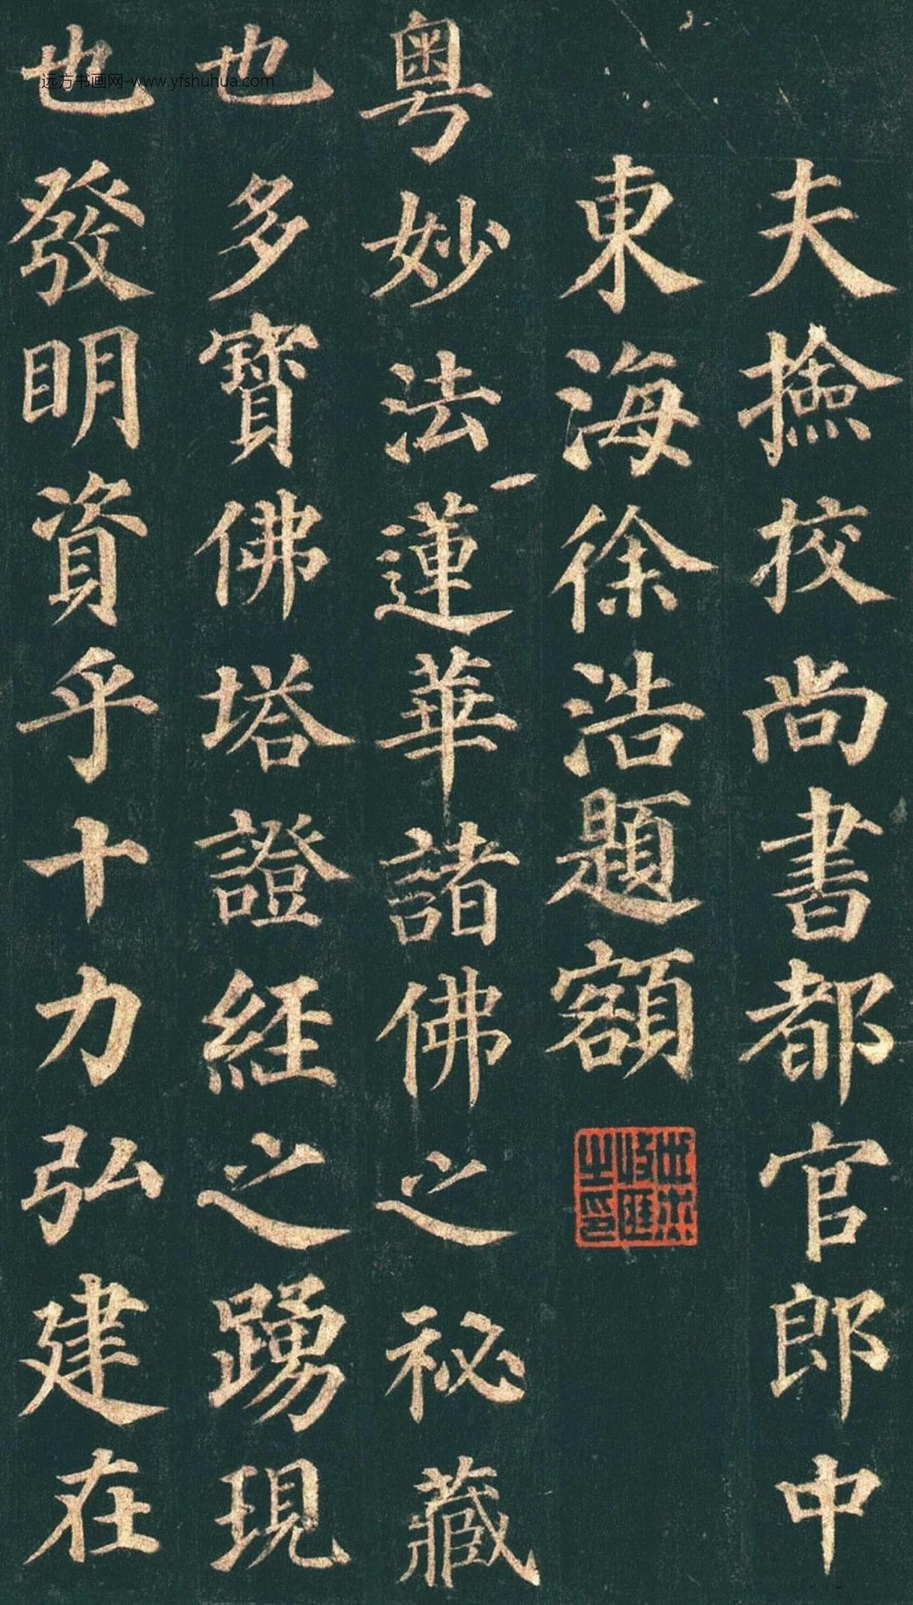 夫撿挍尚書都官郎中
東海徐浩題額
粵妙法蓮華諸佛之祕藏
也多寶佛塔證經之踴現
也發明資乎十力弘建在
远方书画网-www.yfshuhua.com